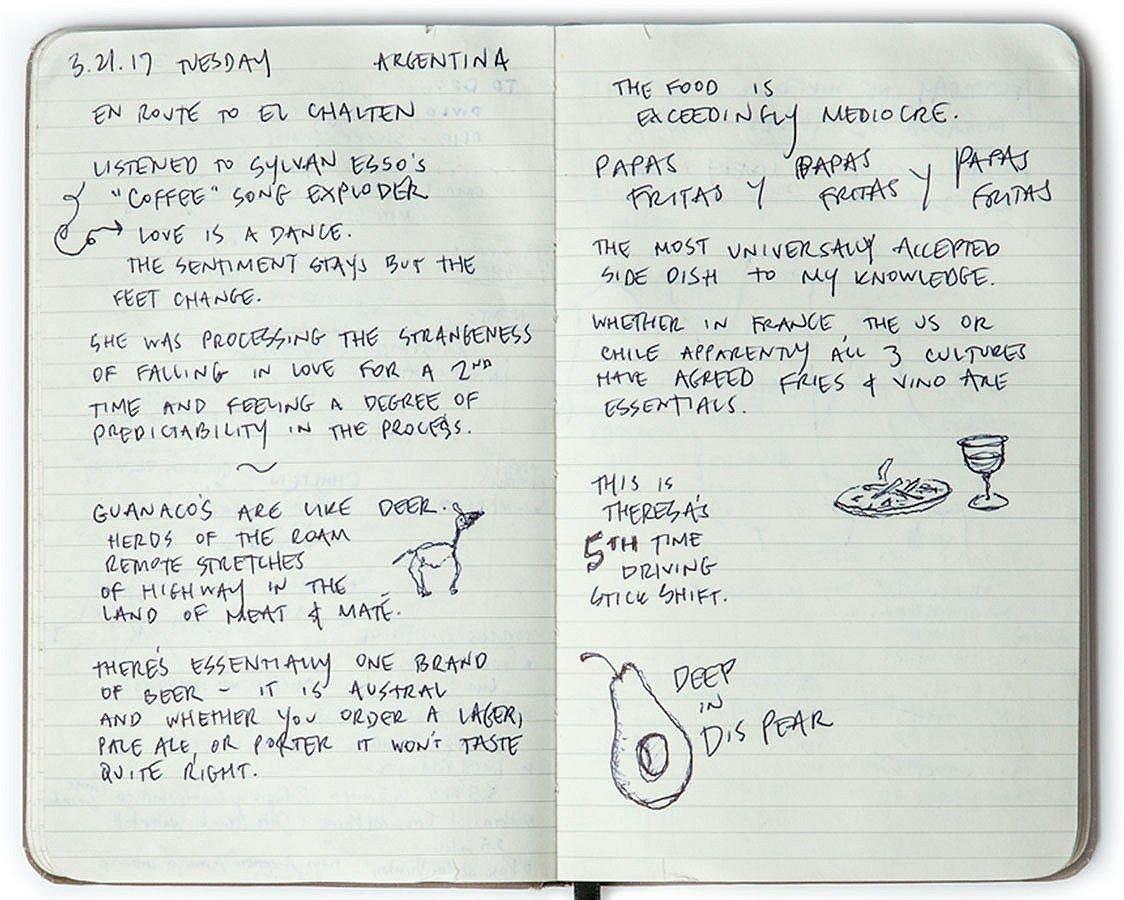 3.21.17 TUESDAY ARGENTINA
EN ROUTE TO EL CHALTEN
LISTENED TO SYLVAN ESSO'S
"COFFEE" SONG EXPLODER
LOVE IS A DANCE.
THE SENTIMENT STAYS BUT THE
FEET CHANGE.
SHE WAS PROCESSING THE STRANGENESS
OF FALLING IN LOVE FOR A 2ND
TIME AND FEELING A DEGREE OF
PREDICTABILITY IN THE PROCESS.
~
GUANACO'S ARE LIKE DEER.
HERDS OF THE ROAM
REMOTE STRETCHES
OF HIGHWAY IN THE
LAND OF MEAT & MATÉ.
THERE'S ESSENTIALLY ONE BRAND
OF BEER - IT IS AUSTRAL
AND WHETHER YOU ORDER A LAGER,
PALE ALE, OR PORTER IT WON'T TASTE
QUITE RIGHT.
THE FOOD IS
EXCEEDINGLY MEDIOCRE.
PAPAS PAPAS PAPAS
FRITAS Y FRITAS Y FRITAS
THE MOST UNIVERSALLY ACCEPTED
SIDE DISH TO MY KNOWLEDGE.
WHETHER IN FRANCE, THE US OR
CHILE APPARENTLY ALL 3 CULTURES
HAVE AGREED FRIES & VINO ARE
ESSENTIALS.
THIS IS
THERESA'S
5TH TIME
DRIVING
STICK SHIFT.
DEEP
IN
DIS PEAR